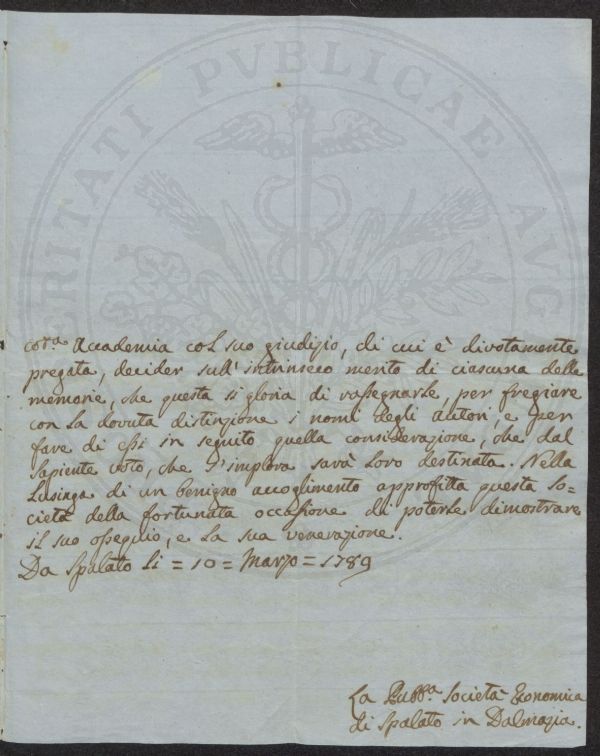 VERITATI PVBLICAE AVG
cot.a Accademia col suo giudizio, di cui è divotamente
pregata, decider sull' intrinseco merito di ciascuna delle
memorie, che questa si gloria di rassegnarle, per fregiare
con la dovuta distinzione i nomi degli autori, e per
fare di essi in seguito quella considerazione, che dal
sapiente voto, che s'implora sarà loro destinata. Nella
Lusinga di un benigno accoglimento approfitta questa So=
cietà della fortunata occasione di poterle dimostrare
il suo ossequio, e la sua venerazione.
Da Spalato li = 10 = Marzo = 1789
La Pubb.a Società Economica
di Spalato in Dalmazia.